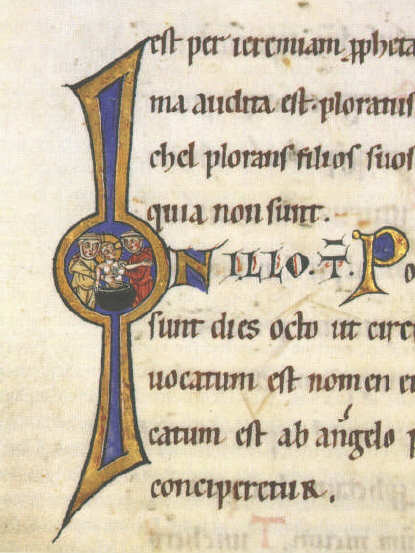 est per ieremiam ꝓpheta
ma audita est. ploratus
chel plorans filios suos
quia non sunt.
IN ILLO. T̄. Po
sunt dies octo ut circ
uocatum est nomen ei
catum est ab angelo p
conciperetur.